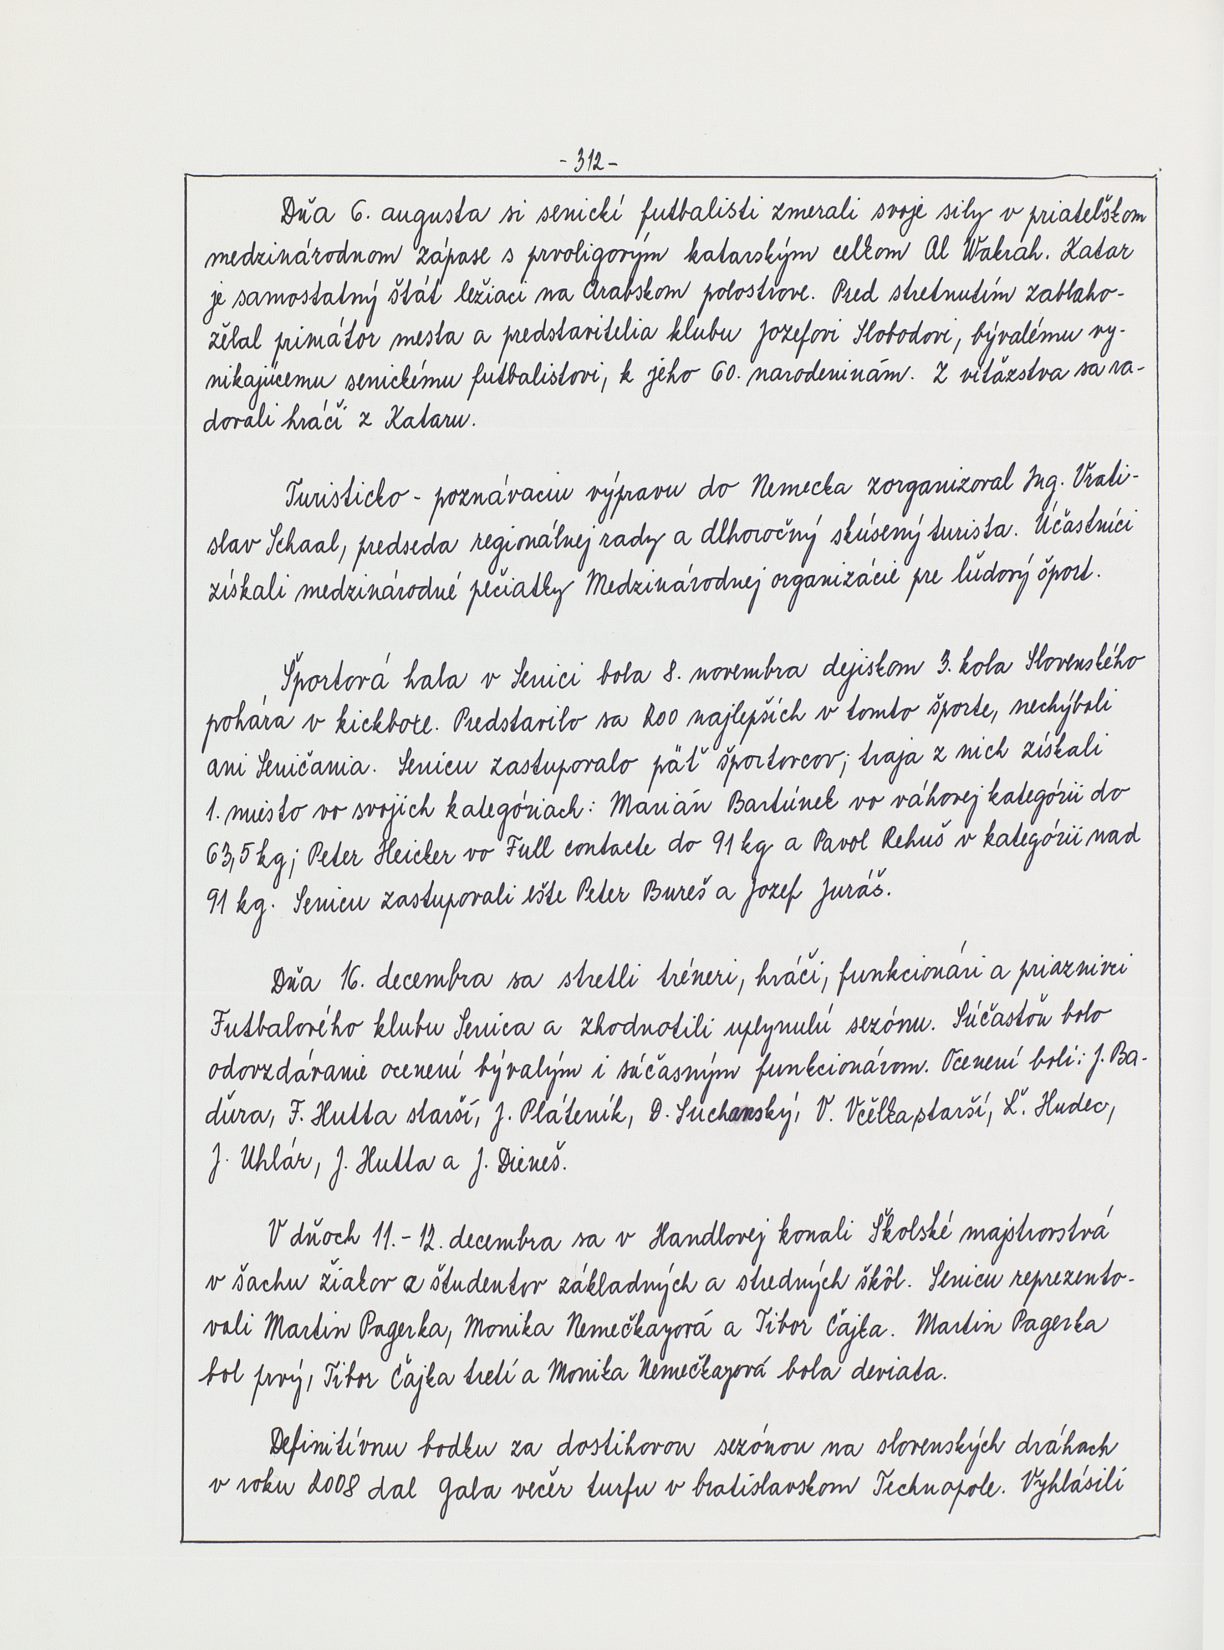 - 312 -
Dňa 6. augusta si senickí futbalisti zmerali svoje sily v priateľskom
medzinárodnom zápase s prvoligovým katarským celkom Al Wakrah. Katar
je samostatný štát ležiaci na Arabskom polostrove. Pred stretnutím zablaho-
želal primátor mesta a predstavitelia klubu Jozefovi Slobodovi, bývalému vy-
nikajúcemu senickému futbalistovi, k jeho 60. narodeninám. Z víťazstva sa ra-
dovali hráči z Kataru.
Turisticko - poznávaciu výpravu do Nemecka zorganizoval Ing. Vrati-
slav Schaal, predseda regionálnej rady a dlhoročný skúsený turista. Účastníci
získali medzinárodné pečiatky Medzinárodnej organizácie pre ľudový šport.
Športová hala v Senici bola 8. novembra dejiskom 3. kola Slovenského
pohára v kickboxe. Predstavilo sa 200 najlepších v tomto športe, nechýbali
ani Seničania. Senicu zastupovalo päť športovcov; traja z nich získali
1. miesto vo svojich kategóriach: Marián Bartúnek vo váhovej kategórii do
63,5 kg; Peter Heicker vo Full contacte do 91 kg a Pavol Rehuš v kategórii nad
91 kg. Senicu zastupovali ešte Peter Bureš a Jozef Juráš.
Dňa 16. decembra sa stretli tréneri, hráči, funkcionári a priaznivci
Futbalového klubu Senica a zhodnotili uplynulú sezónu. Súčasťou bolo
odovzdávanie ocenení bývalým i súčasným funkcionárom. Ocenení boli: J. Ba-
ďura, F. Hutta starší, J. Pláteník, D. Suchanský, V. Včelka starší, Ľ. Hudec,
J. Uhlár, J. Hutta a J. Dieneš.
V dňoch 11. - 12. decembra sa v Handlovej konali Školské majstrovstvá
v šachu žiakov a študentov základných a stredných škôl. Senicu reprezento-
vali Martin Pagerka, Monika Nemečkayová a Tibor Čajka. Martin Pagerka
bol prvý, Tibor Čajka tretí a Monika Nemečkayová bola deviata.
Definitívnu bodku za dostihovou sezónou na slovenských dráhach
v roku 2008 dal Gala večer turfu v bratislavskom Technopole. Vyhlásili